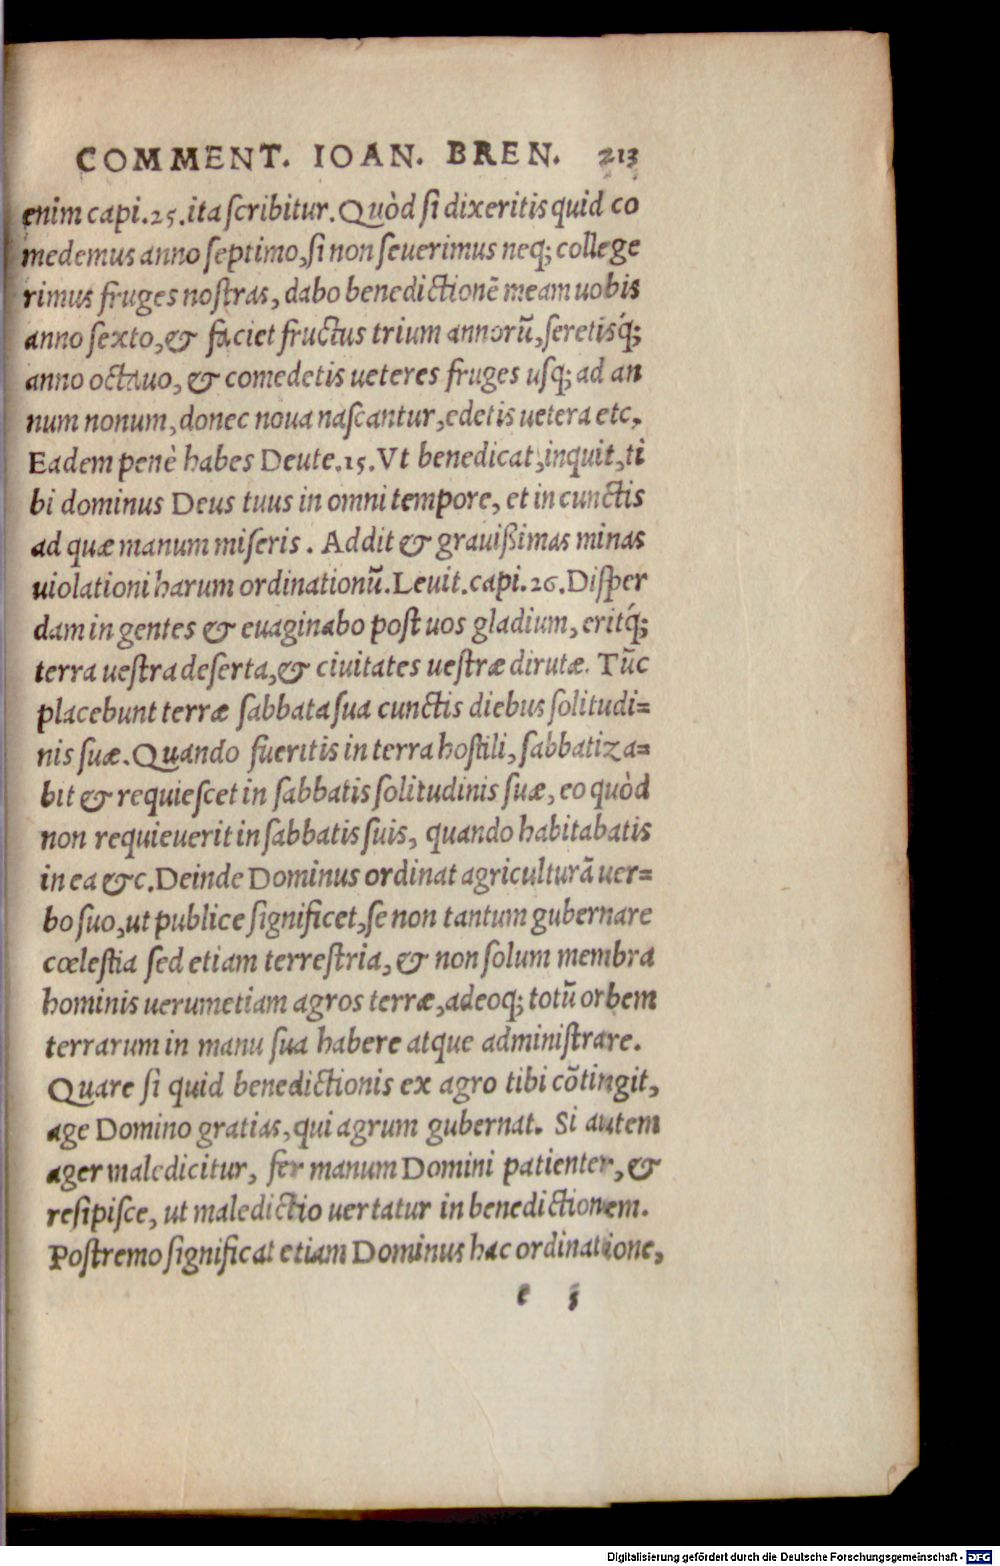 COMMENT. IOAN. BREN. 213
enim capi.25.ita ſcribitur.Quòd ſi dixeritis quid co
medemus anno ſeptimo,ſi non ſeuerimus neq; college
rimus fruges noſtras, dabo benedictionẽ meam uobis
anno ſexto,& faciet fructus trium annorũ,ſeretisq́;
anno octauo, & comedetis ueteres fruges uſq; ad an
num nonum, donec noua naſcantur,edetis uetera etc.
Eadem penè habes Deute.15.Vt benedicat,inquit,ti
bi dominus Deus tuus in omni tempore, et in cunctis
ad quæ manum miſeris. Addit & grauißimas minas
uiolationi harum ordinationũ.Leuit.capi.26.Diſper
dam in gentes & euaginabo poſt uos gladium, eritq́;
terra ueſtra deſerta,& ciuitates ueſtræ dirutæ. Tũc
placebunt terræ ſabbata ſua cunctis diebus ſolitudi=
nis ſuæ.Quando fueritis in terra hoſtili, ſabbatiza=
bit & requieſcet in ſabbatis ſolitudinis ſuæ, eo quòd
non requieuerit in ſabbatis ſuis, quando habitabatis
in ea &c.Deinde Dominus ordinat agriculturã uer=
bo ſuo,ut publice ſignificet,ſe non tantum gubernare
cœleſtia ſed etiam terreſtria, & non ſolum membra
hominis uerumetiam agros terræ,adeoq; totũ orbem
terrarum in manu ſua habere atque adminiſtrare.
Quare ſi quid benedictionis ex agro tibi cõtingit,
age Domino gratias, qui agrum gubernat. Si autem
ager maledicitur, fer manum Domini patienter, &
reſipiſce, ut maledictio uertatur in benedictionem.
Poſtremo ſignificat etiam Dominus hac ordinatione,
Digitalisierung gefördert durch die Deutsche Forschungsgemeinschaft - DFG